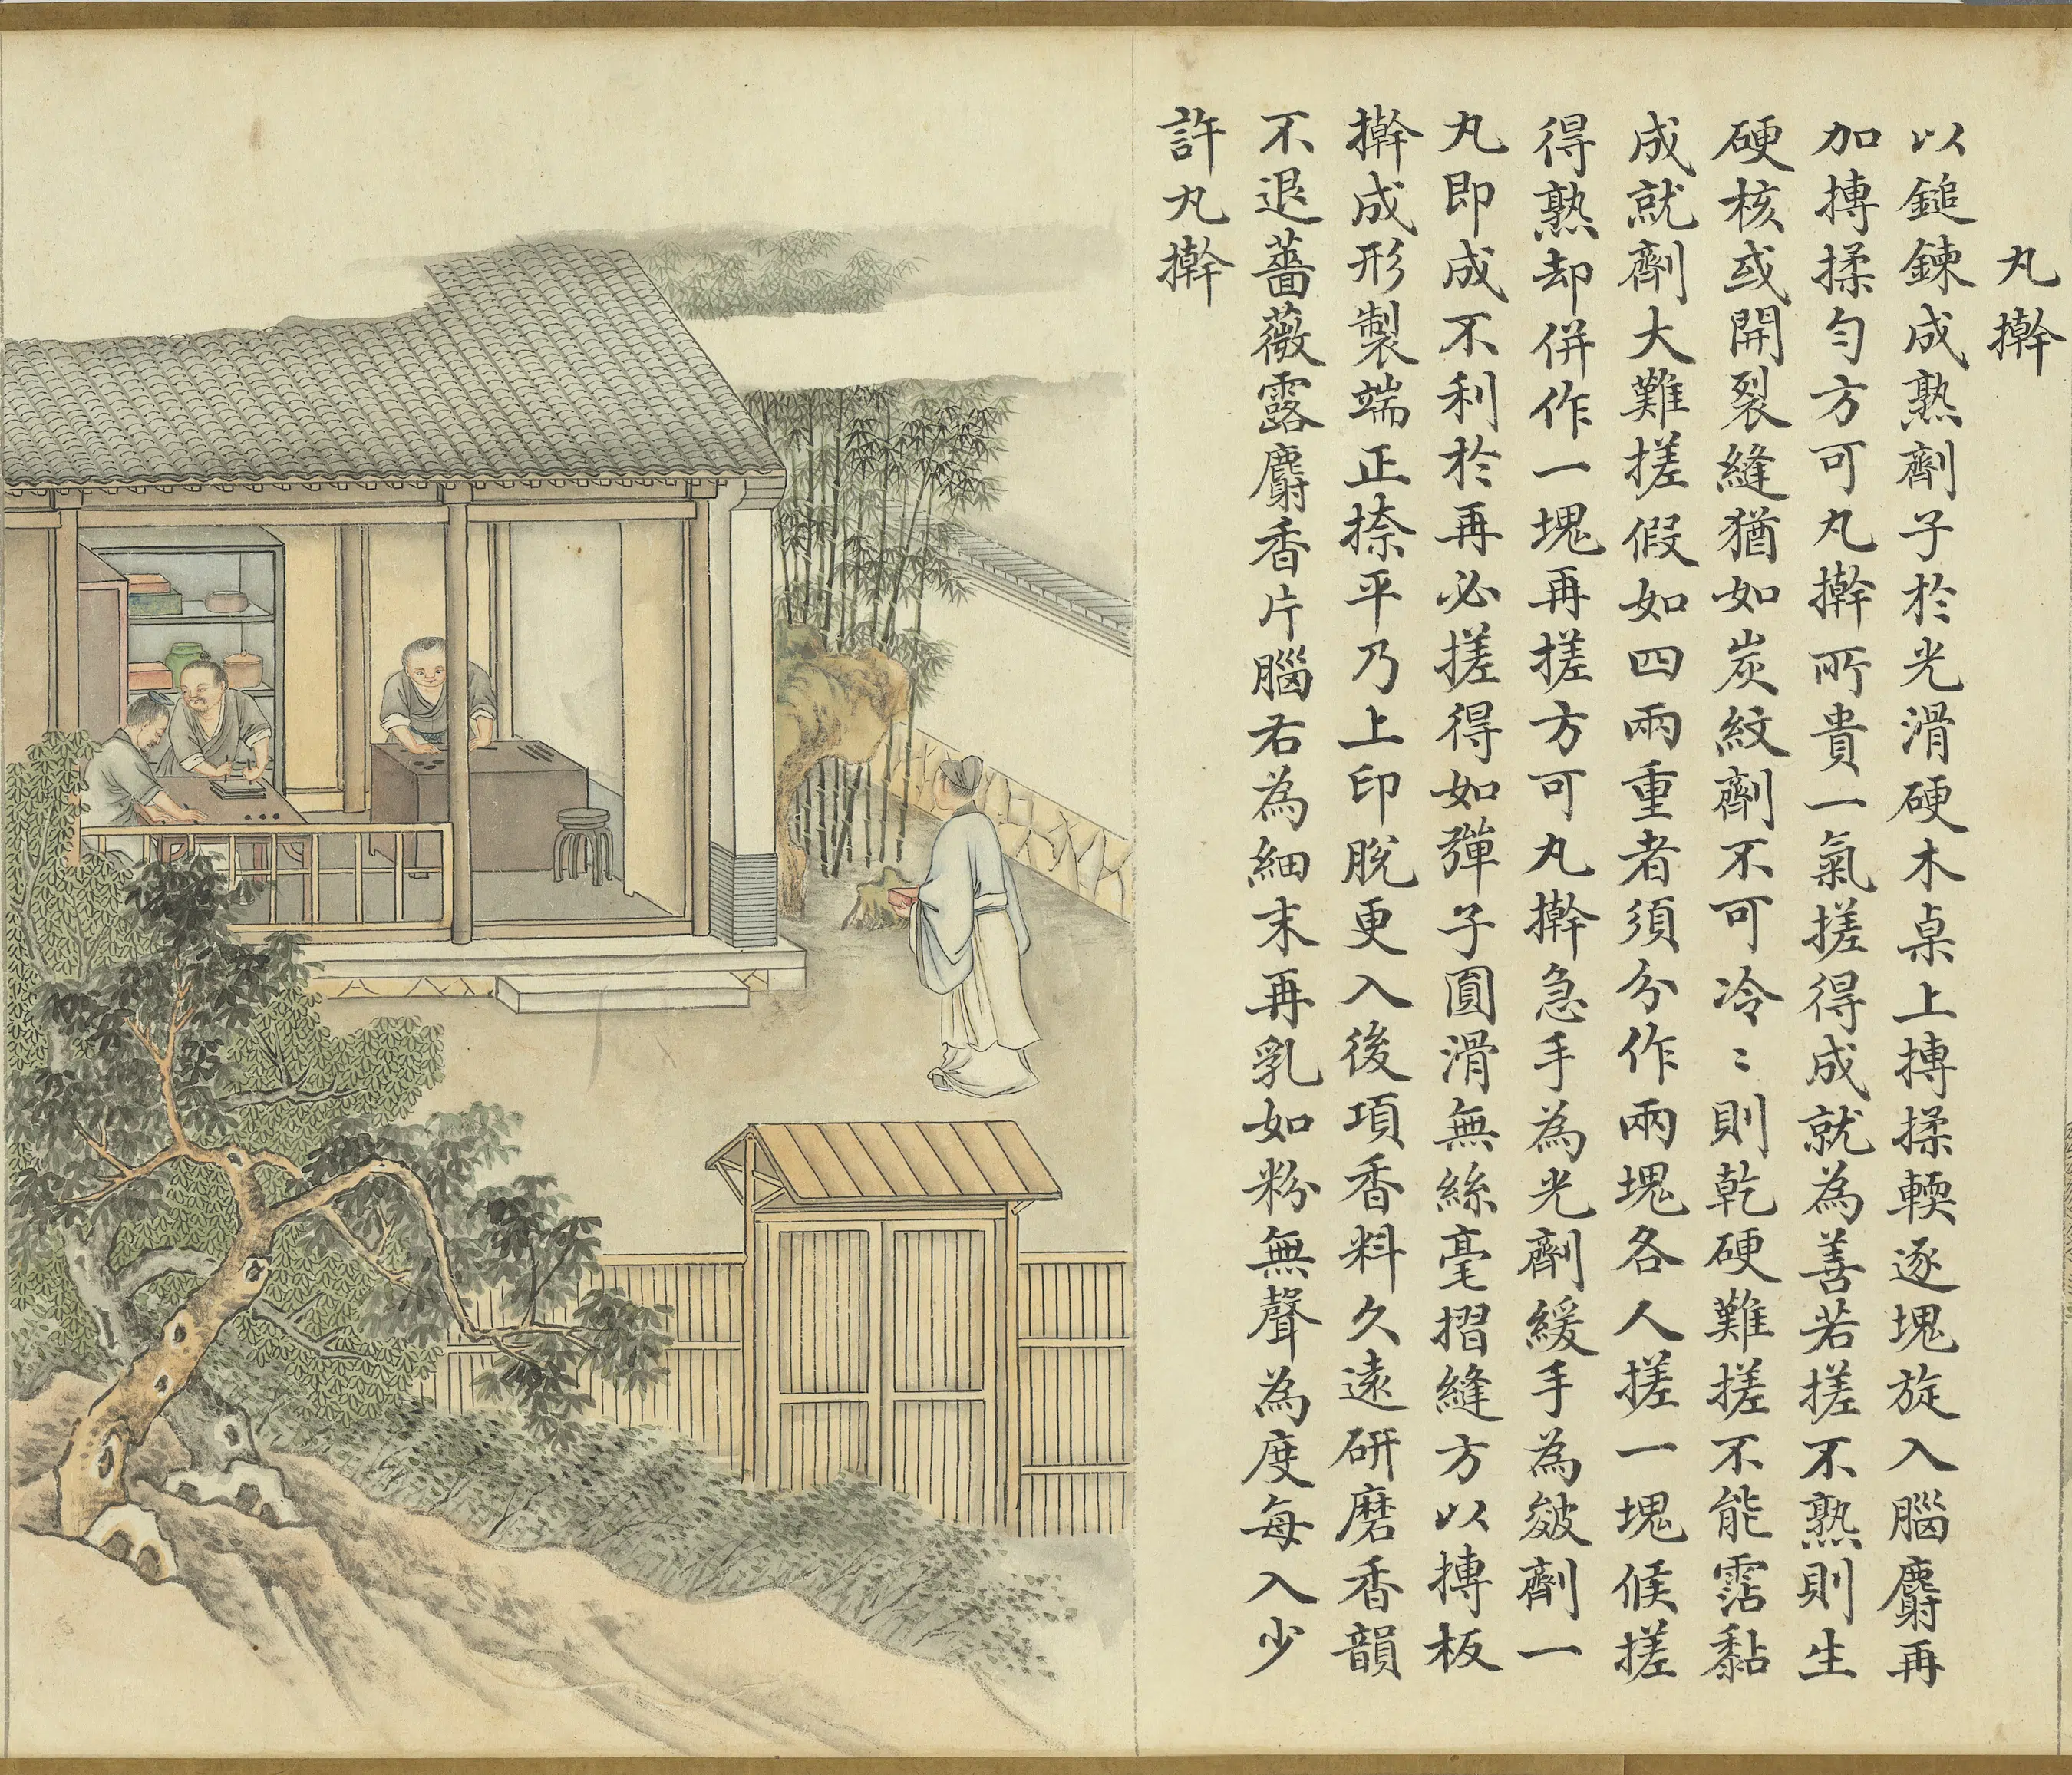 丸擀
以鎚鍊成熟劑子於光滑硬木桌上摶揉輭逐塊旋入腦麝再
加摶揉勻方可丸擀所貴一氣搓得成就為善若搓不熟則生
硬核或開裂縫猶如炭紋劑不可冷〻則乾硬難搓不能霑黏
成就劑大難搓假如四兩重者須分作兩塊各人搓一塊候搓
得熟却併作一塊再搓方可丸擀急手為光劑緩手為皴劑一
丸即成不利於再必搓得如彈子圓滑無絲毫摺縫方以摶板
擀成形製端正捺平乃上印脫更入後項香料久遠研磨香韻
不退薔薇露麝香片腦右為細末再乳如粉無聲為度每入少
許丸擀